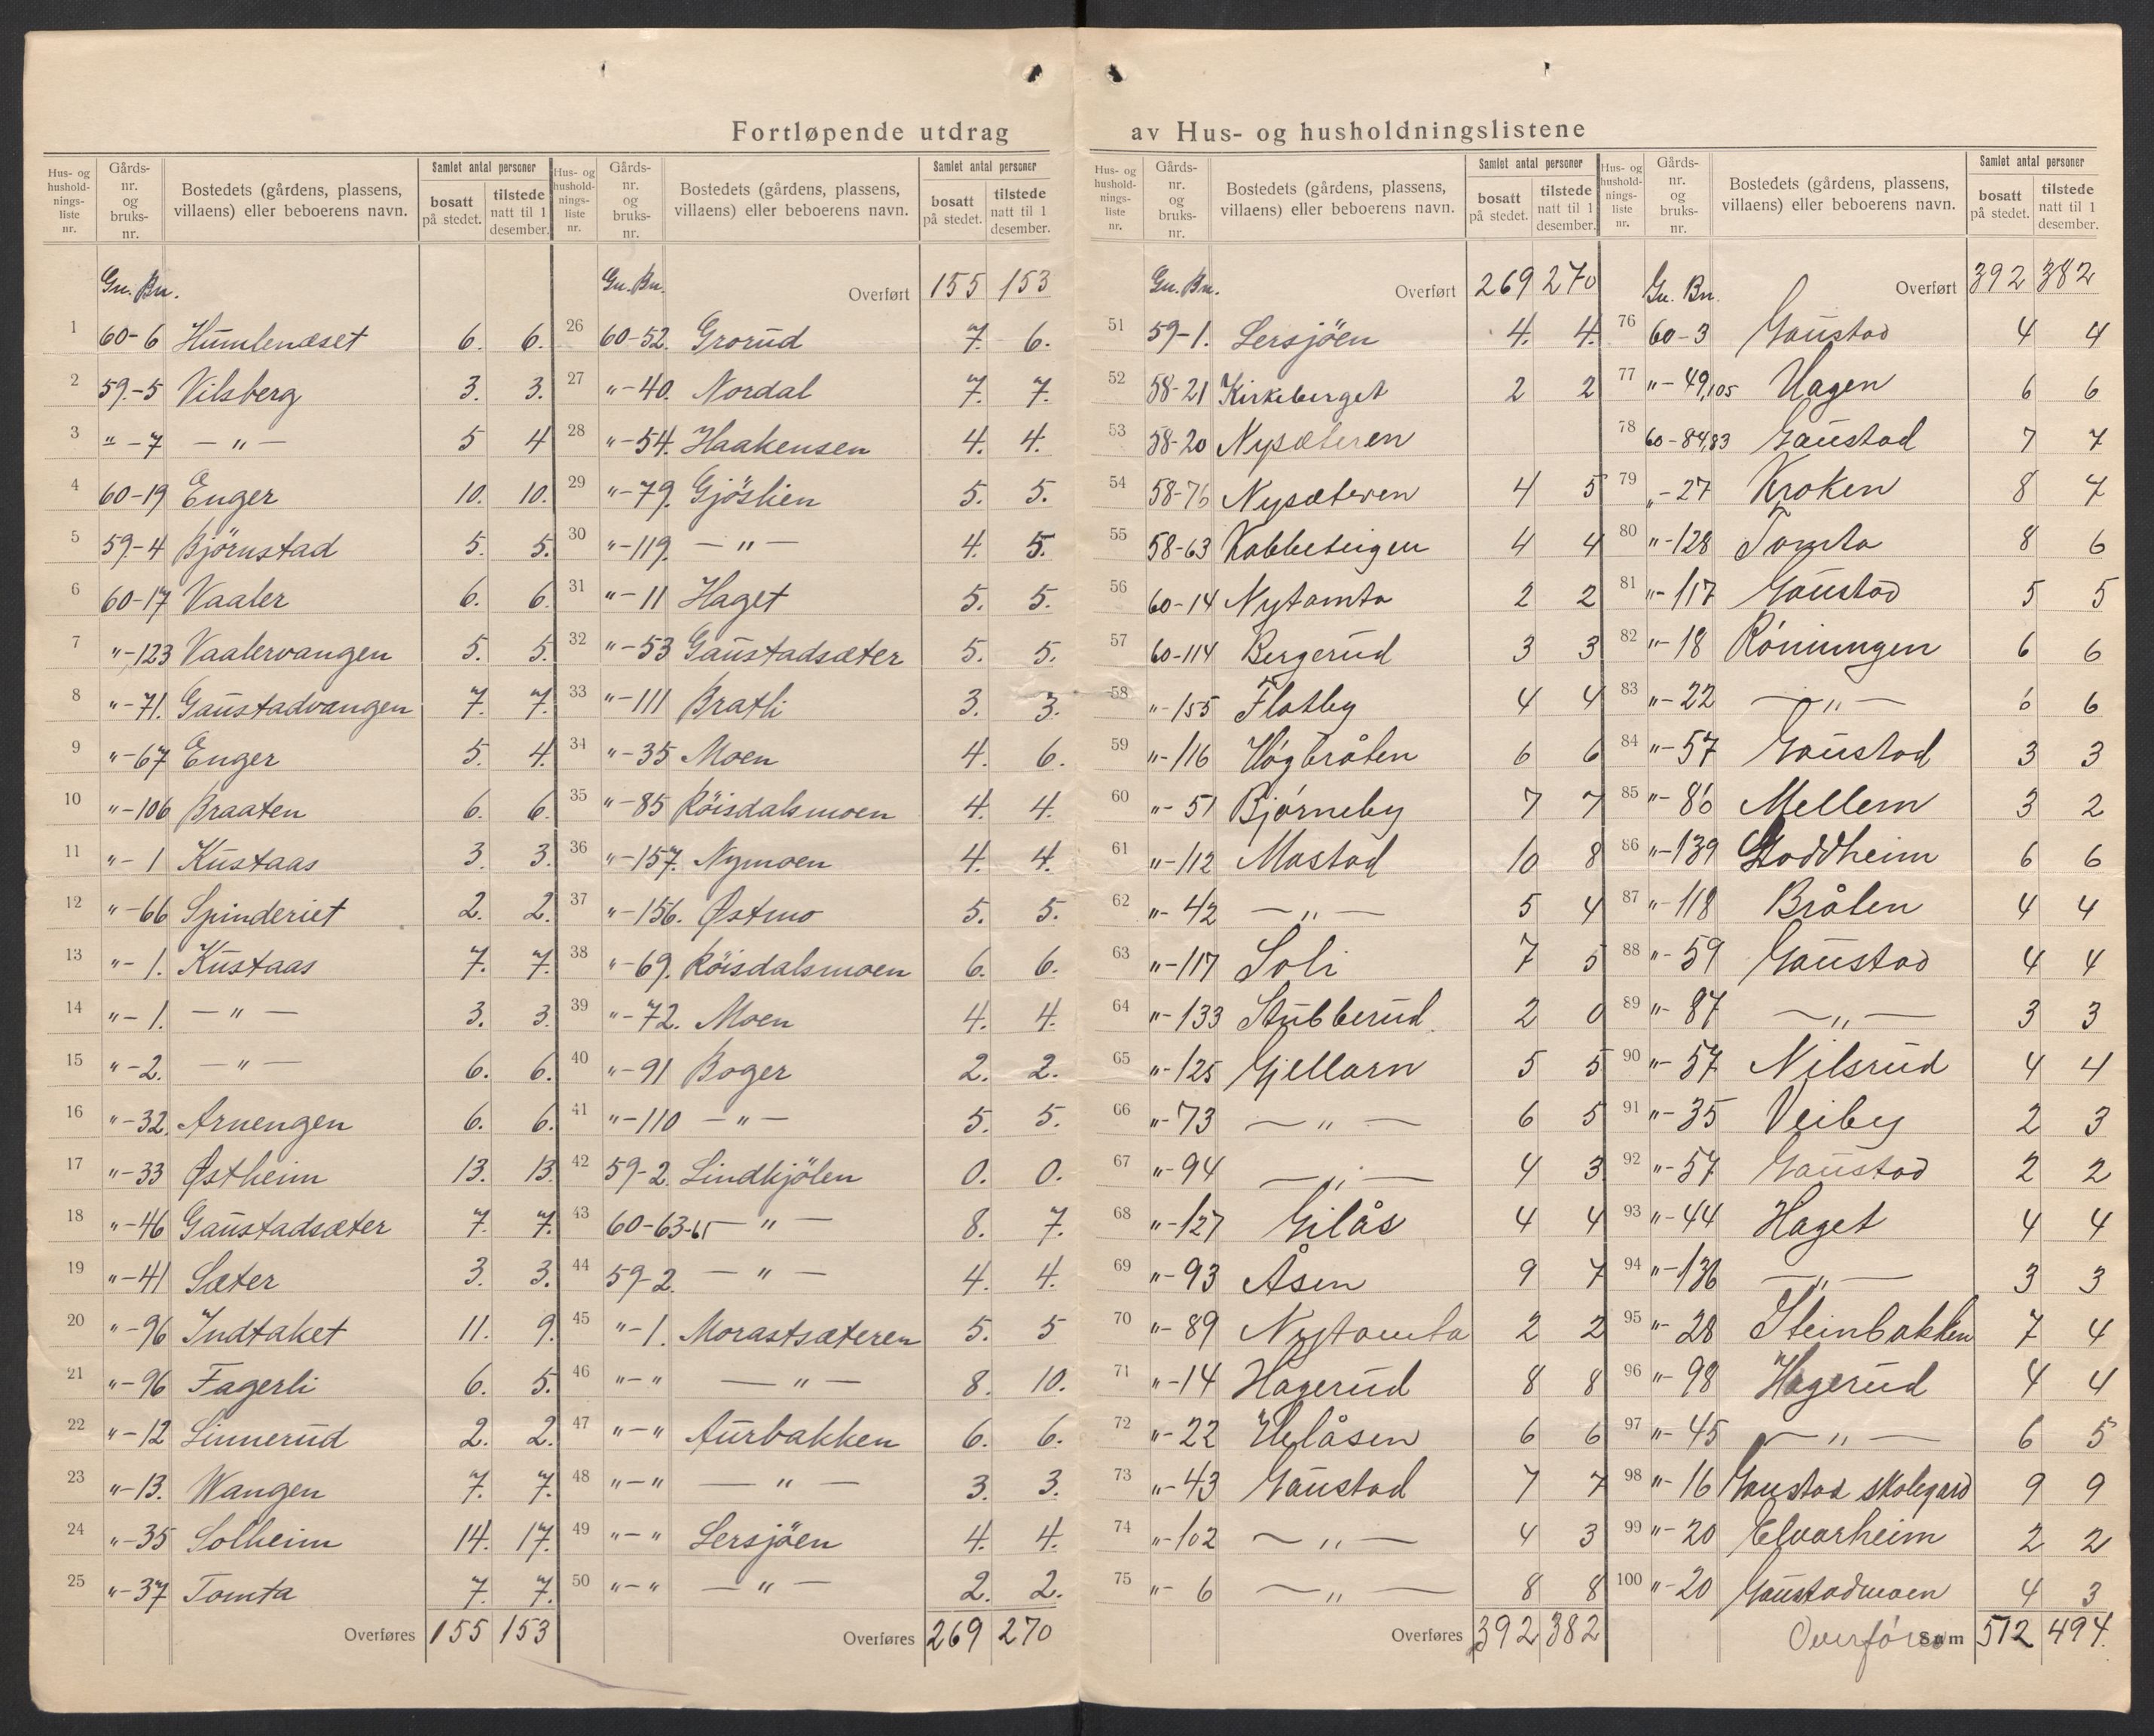 Fortløpende utdrag av Hus- og husholdningslistene
Hus- og hushold-nings-liste nr. Gårds-nr. og bruks-nr. Bostedets (gårdens, plassens, villaens) eller beboerens navn. Samlet antal personer bosatt på stedet. tilstede natt til 1 desember.
Gn. Bn.
1 60-6 Humlenæset 6. 6.
2 59-5 Vilsberg 3. 3.
3 "-7 — " — 5 4
4 60-19 Enger 10. 10.
5 59-4 Bjørnstad 5. 5.
6 60-17 Vaaler 6. 6
7 "-123 Vaalervangen 5. 5.
8 "-71. Gaustadvangen 7. 7.
9 "-67 Enger 5. 4.
10 "-106 Braaten 6. 6.
11 "-1 Kustaas 3. 3.
12 "-66 Spinderiet 2. 2.
13 "-1. Kustaas 7. 7.
14 "-1. — " — 3. 3.
15 "-2. — " — 6. 6.
16 "-32. Arnengen 6. 6.
17 "-33 Østheim 13. 13.
18 "-46 Gaustadsæter 7. 7.
19 "-41 Sæter 3. 3.
20 "-96 Indtaket 11. 9.
21 "-96 Fagerli 6. 5.
22 "-12 Linnerud 2. 2.
23 "-13. Wangen 7. 7.
24 "-35 Solheim 14. 17.
25 "-37 Tomta 7. 7.
Overføres 155 153
Hus- og hushold-nings-liste nr. Gårds-nr. og bruks-nr. Bostedets (gårdens, plassens, villaens) eller beboerens navn. Samlet antal personer bosatt på stedet. tilstede natt til 1 desember.
Gn. Bn. Overført 155 153
26 60-52. Grorud 7. 6.
27 "-40. Nordal 7. 7.
28 "-54. Haakensen 4. 4.
29 "-79. Gjöslien 5. 5.
30 "-119. — " — 4. 5.
31 "-11 Haget 5. 5.
32 "-53 Gaustadsæter 5. 5.
33 "-111 Bratli 3. 3.
34 "-35 Moen 4. 6.
35 "-85 Röisdalsmoen 4. 4.
36 "-157. Nymoen 4. 4.
37 "-156. Østmo 5. 5.
38 "-69. Röisdalsmoen 6. 6.
39 "-72. Moen 4. 4.
40 "-91 Boger 2. 2.
41 "-110 — " — 5. 5.
42 59-2. Lindkjölen 0. 0.
43 60-63-65 — " — 8. 7.
44 59-2. — " — 4. 4.
45 "-1. Morastsæteren 5. 5
46 "-" — " — 8. 10.
47 "-" Aurbakken 6. 6.
48 "-" — " — 3. 3.
49 "-" Lersjöen 4. 4.
50 "-" — " — 2. 2.
Overføres 269 270
Hus- og hushold-nings-liste nr. Gårds-nr. og bruks-nr. Bostedets (gårdens, plassens, villaens) eller beboerens navn. Samlet antal personer bosatt på stedet. tilstede natt til 1 desember.
Gn. Bn. Overført 269 270
51 59-1. Lersjöen 4. 4.
52 58-21 Kirkeberget 2 2
53 58-20 Nysæteren
54 58-76 Nysæteren 4 5
55 58-63 Kabbeteigen 4 4
56 60-14 Nytomta 2 2
57 60-114 Bergerud 3 3
58 "-155 Flatby 4 4
59 "-116 Høgbråten 6 6
60 "-51 Bjørneby 7 7
61 "-112 Mostad 10 8
62 "-42 — " — 5 4
63 "-117 Soli 7 5
64 "-133 Stubberud. 2 0
65 "-125 Gjellarn 5 5
66 "-73 — " — 6 5
67 "-94 — " — 4 3
68 "-127 Gilås 4 4
69 "-93 Åsen 9 7
70 "-89 Nytomta 2 2
71 "-14 Hagerud 8 8
72 "-22 Ulvåsen 6 6
73 "-43 Gaustad 7 7
74 "-102 — " — 4 3
75 "-6 — " — 8 8
Overføres 392 382
Hus- og hushold-nings-liste nr. Gårds-nr. og bruks-nr. Bostedets (gårdens, plassens, villaens) eller beboerens navn. Samlet antal personer bosatt på stedet. tilstede natt til 1 desember.
Gn. Bn. Overført 392 382
76 60-3 Gaustad 4 4
77 "-49,105 Hagen 6 6
78 60-84,83 Gaustad 7 7
79 "-27 Kroken 8 7
80 "-128 Tomta 8 6
81 "-117 Gaustad 5 5
82 "-18 Rönningen 6 6
83 "-22 — " — 6 6
84 "-57 Gaustad 3 3
85 "-86 Mellem 3 2
86 "-139 Stoddheim 6 6
87 "-118 Bråten 4 4
88 "-59 Gaustad 4 4
89 "-87 — " — 3 3
90 "-57 Nilsrud 4 4
91 "-35 Veiby 2 3
92 "-57 Gaustad 2 2
93 "-44 Haget 4 4
94 "-136 — " — 3 3
95 "-28 Steinbakken 7 4
96 "-98 Hagerud 4 4
97 "-45 — " — 6 5
98 "-16 Gaustad skolegard 9 9
99 "-20 Elvarheim 2 2
100 "-20 Gaustadmoen 4 3
Overføres Sum 512 494.